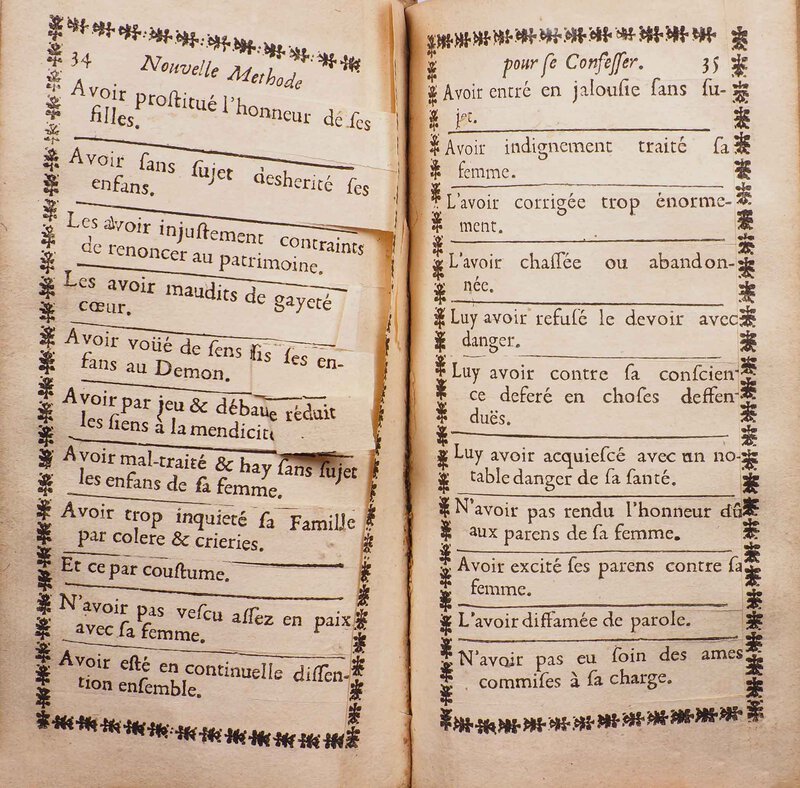 34 Nouvelle Methode
Avoir proſtitué l'honneur de ſes
filles.
Avoir ſans ſujet desherité ſes
enfans.
Les avoir injuſtement contraints
de renoncer au patrimoine.
Les avoir maudits de gayeté
cœur.
Avoir voüé de ſens ſis ſes en-
fans au Demon.
Avoir par jeu & débaue réduit
les ſiens à la mendicité
Avoir mal-traité & hay ſans ſujet
les enfans de ſa femme.
Avoir trop inquieté ſa Famille
par colere & crieries.
Et ce par couſtume.
N'avoir pas veſcu aſſez en paix
avec ſa femme.
Avoir eſté en continuelle diſſen-
tion enſemble.
pour ſe Confeſſer. 35
Avoir entré en jalouſie ſans ſu-
jet.
Avoir indignement traité ſa
femme.
L'avoir corrigée trop énorme-
ment.
L'avoir chaſſée ou abandon-
née.
Luy avoir refuſé le devoir avec
danger.
Luy avoir contre ſa conſcien-
ce deferé en choſes deffen-
duës.
Luy avoir acquieſcé avec un no-
table danger de ſa ſanté.
N'avoir pas rendu l'honneur dû
aux parens de ſa femme.
Avoir excité ſes parens contre ſa
femme.
L'avoir diffamée de parole.
N'avoir pas eu ſoin des ames
commiſes à ſa charge.